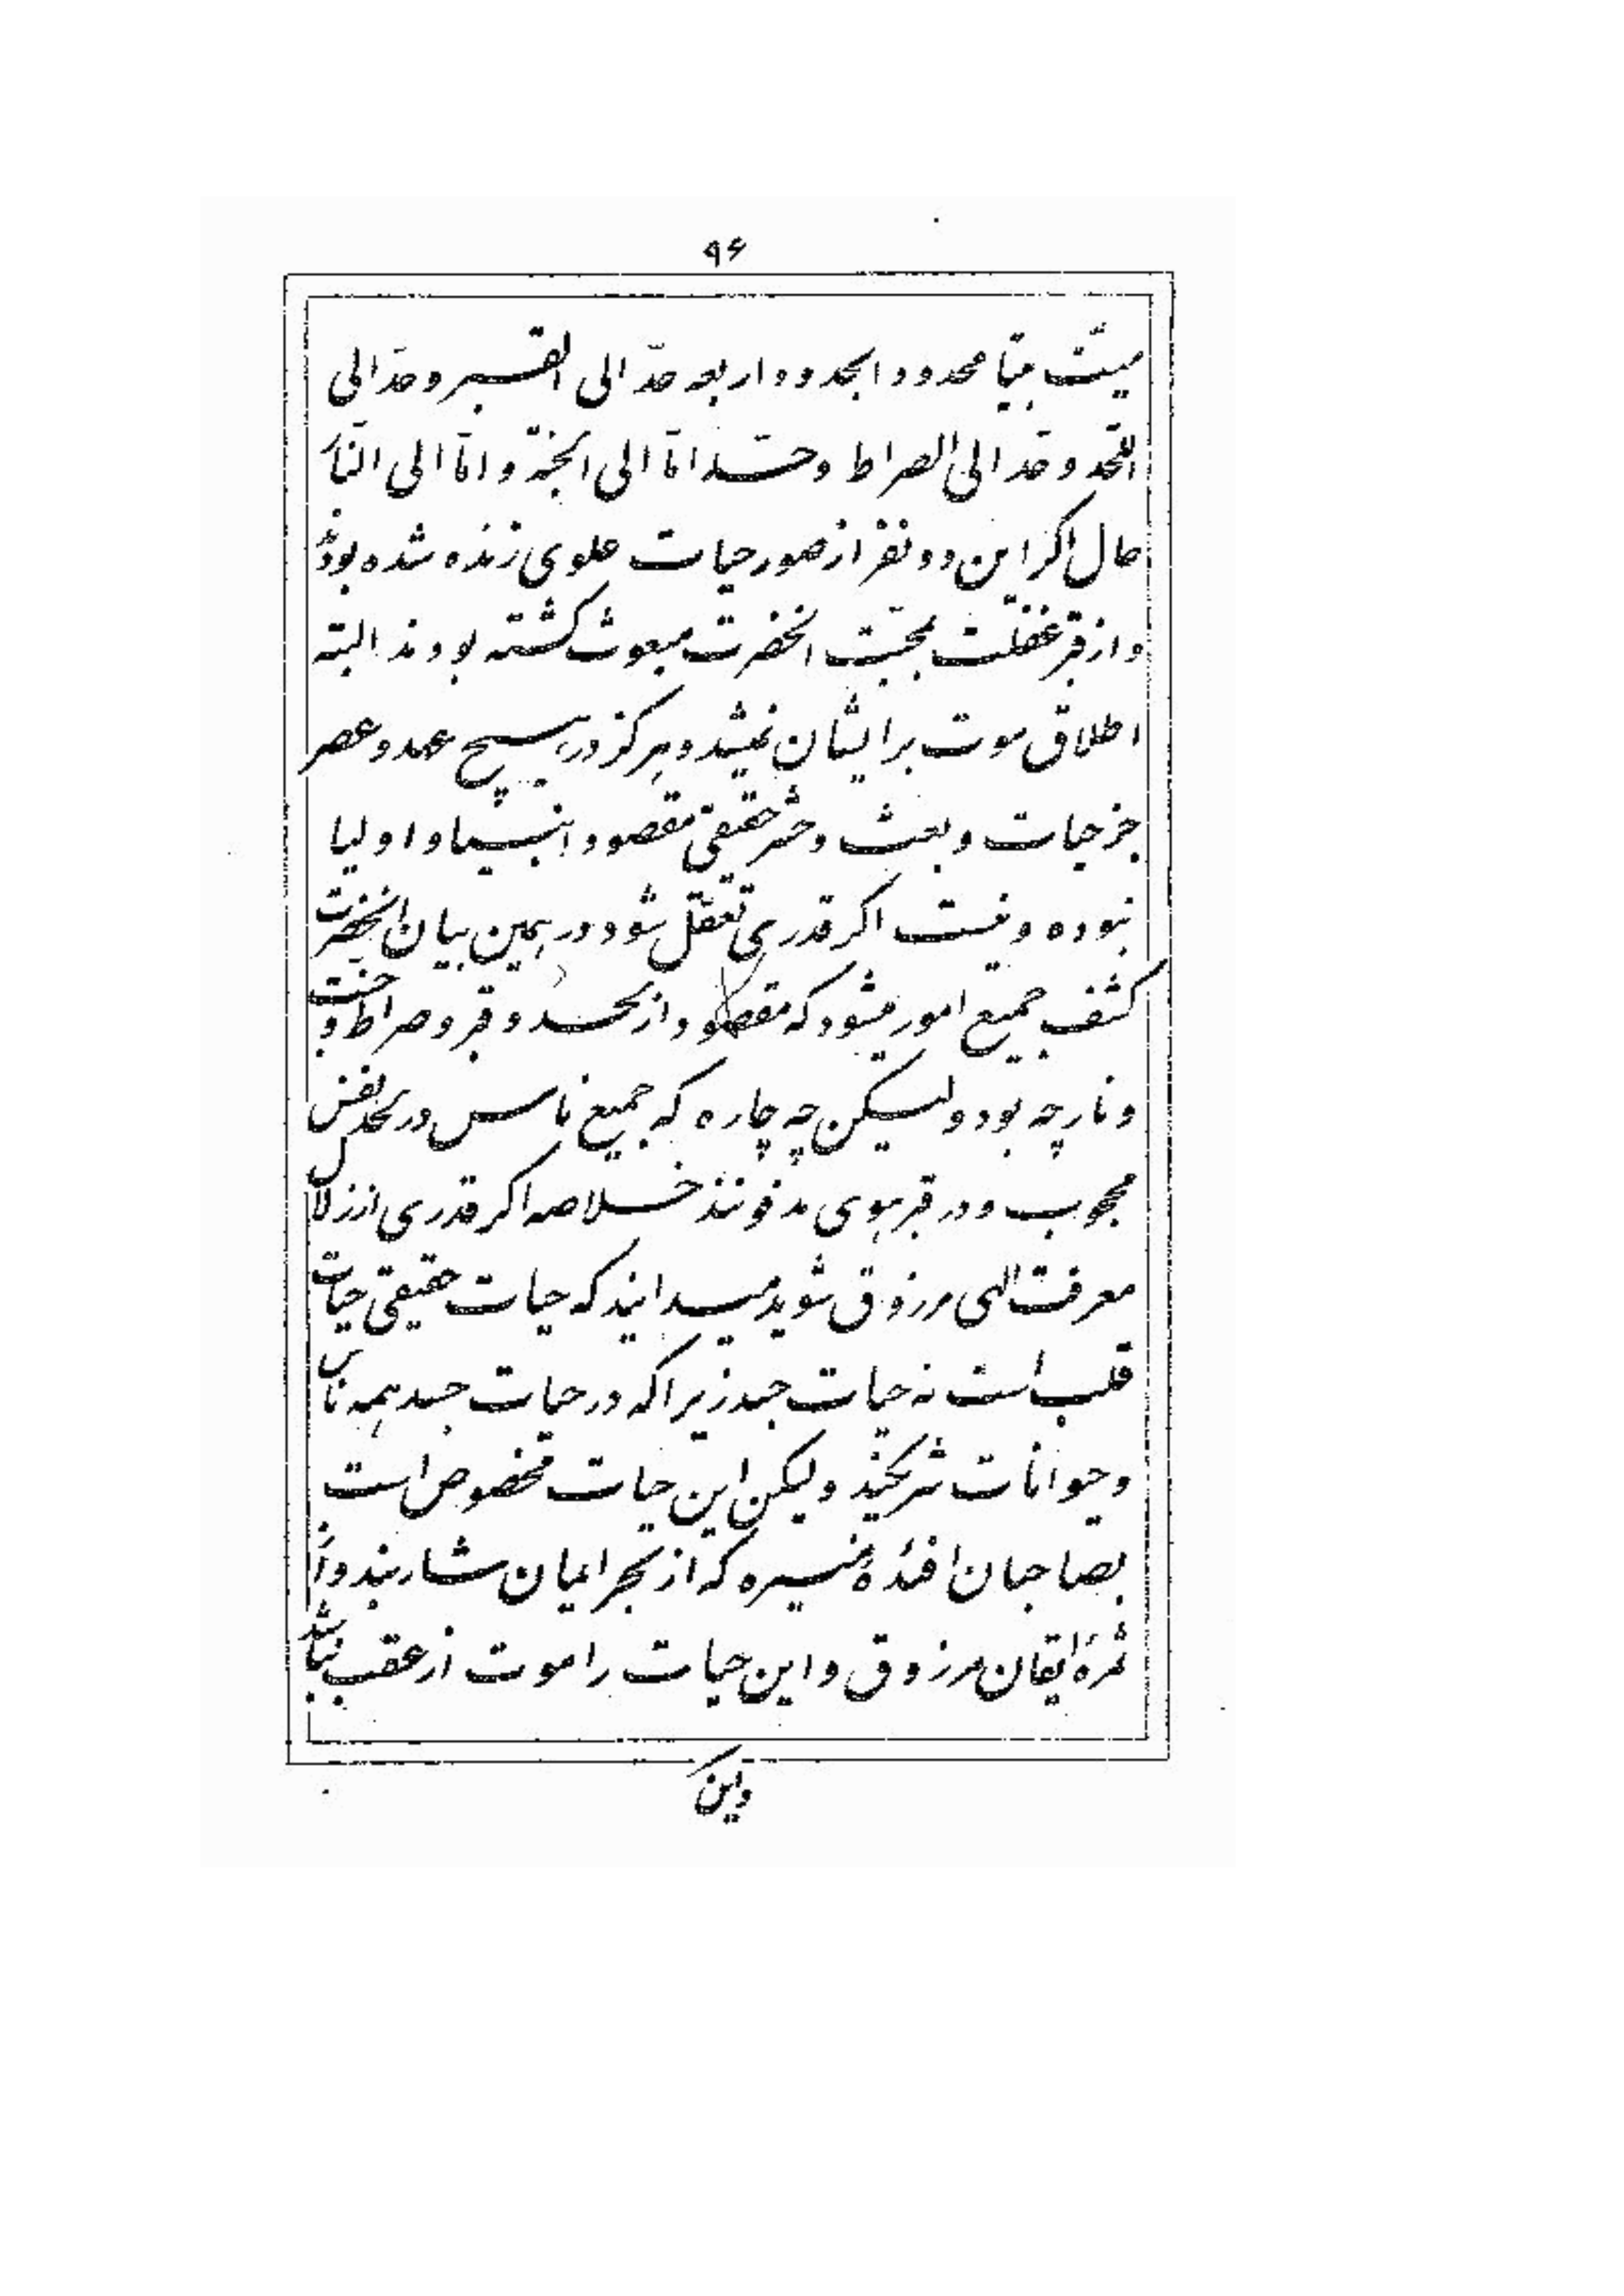 ۹۶
ميّت بيتا محدودا بحدود اربعه حدّ الی القبر و حدّ الی
اللّحد و حدّ الی الصراط و حدّ امّا الی الجنّة و امّا الی النّار
حال اگر اين دو نفر از صور حيات علوی زنده شده بودند
و از قبر غفلت بمحبّت انحضرت مبعوث گشته بودند البته
اطلاق موت بر ايشان نميشد و هرگز در هيچ عهد و عصر
جز حيات و بعث و حشر حقيقی مقصود انبيا و اوليا
نبوده و نيست اگر قدری تعقّل شود در همين بيان انحضرت
کشف جميع امور ميشود که مقصود از لحد و قبر و صراط و جنّت
و نار چه بود وليکن چه چاره که جميع ناس در لحد نفس
محجوب و در قبر هوی مدفونند خلاصه اگر قدری از زلال
معرفت الهی مرزوق شويد ميدانيد که حيات حقيقی حيات
قلب است نه حيات جسد زيرا که در حيات جسد همه ناس
و حيوانات شريکند وليکن اين حيات مخصوص است
بصاحبان افئدهٔ منيره که از بحر ايمان شاربند و از
ثمرهٔ ايقان مرزوق و اين حيات را موت از عقب نباشد
و اين